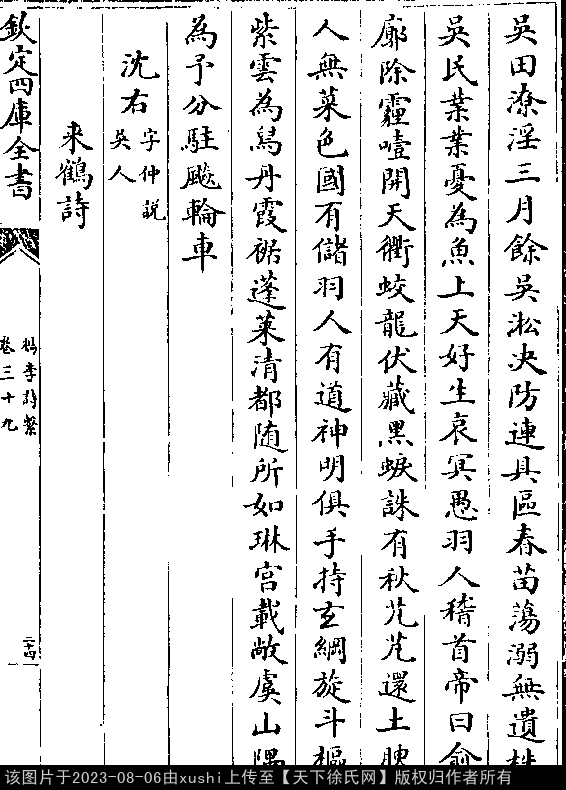 吳田潦淫三月餘吳淞决防連具區春苗蕩溺無遺
吳民業業憂為魚上天好生哀冥愚羽人稽首帝曰俞
廓除霾曀開天衢蛟龍伏藏黑蜧誅有秋芃芃還上腴
人無菜色國有儲羽人有道神明俱手持玄綱旋斗樞
紫雲為舄丹霞裾蓬萊清都隨所如琳宫載敞虞山隅
為予分駐飈輪車
沈右 字仲説
吳人
来鶴詩
欽定四庫全書
檇李詩繫
卷三十九
二十四
该图片于2023-08-06由xushi上传至【天下徐氏网】版权归作者所有